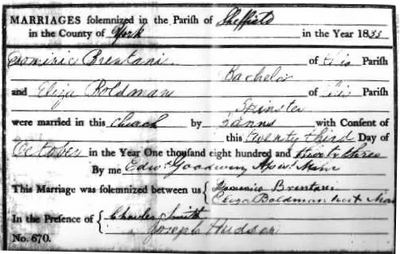 MARRIAGES solemnized in the Parish of Sheffield
in the County of York in the Year 1835
Dominic Brentani of this Parish
Bachelor
and Eliza Boldman of Ti Parish
Spinster
were married in this church by Banns with Consent of
this twenty third Day of
October in the Year One thousand eight hundred and thirty three
By me Edwd Goodwin Minr
This Marriage was solemnized between us { Domenico Brentani
Eliza Boldman
In the Presence of { Charles Smith
Joseph Hudson
No. 670.